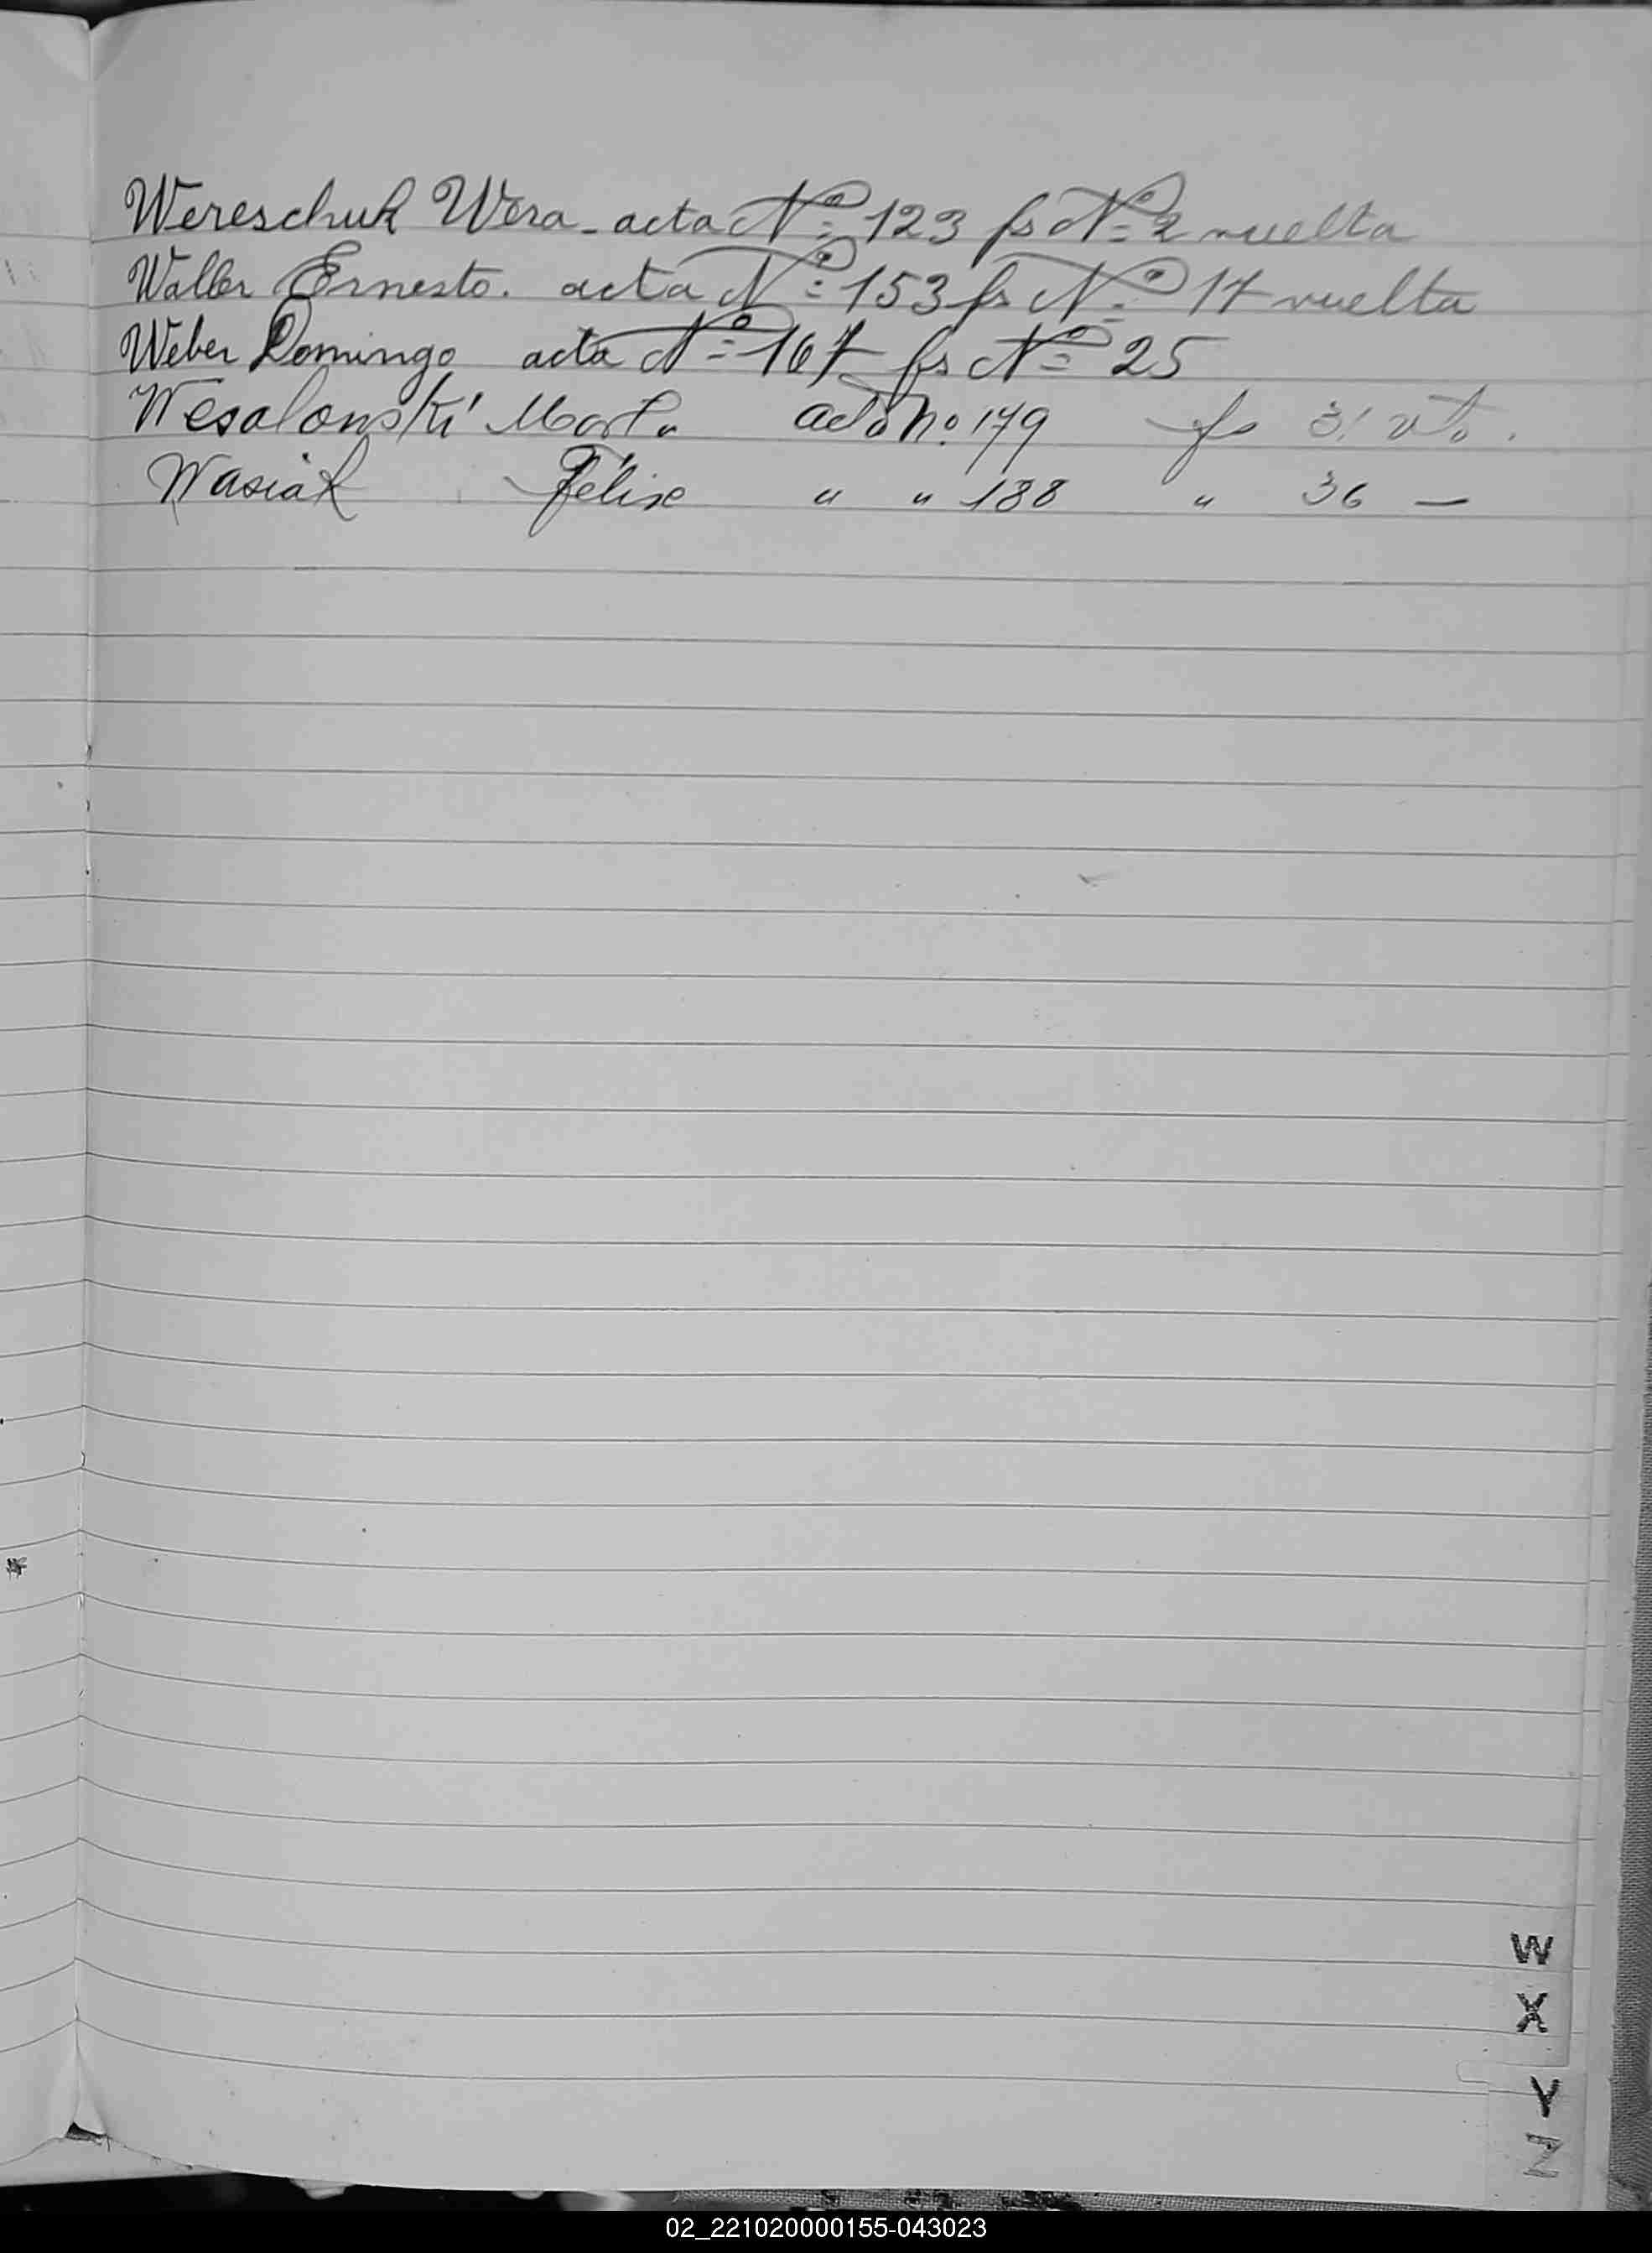 Wereschuk Wera - acta Nº 123 fs Nº 2 vuelta
Waller Ernesto. acta Nº 153 fs Nº 17 vuelta
Weber Domingo acta Nº 167 fs Nº 25
Wesolonski acta No. 179 fs 31 vta.
Wasiak Félix " " 188 " 36 —
W
X
Y
Z
02_221020000155-043023